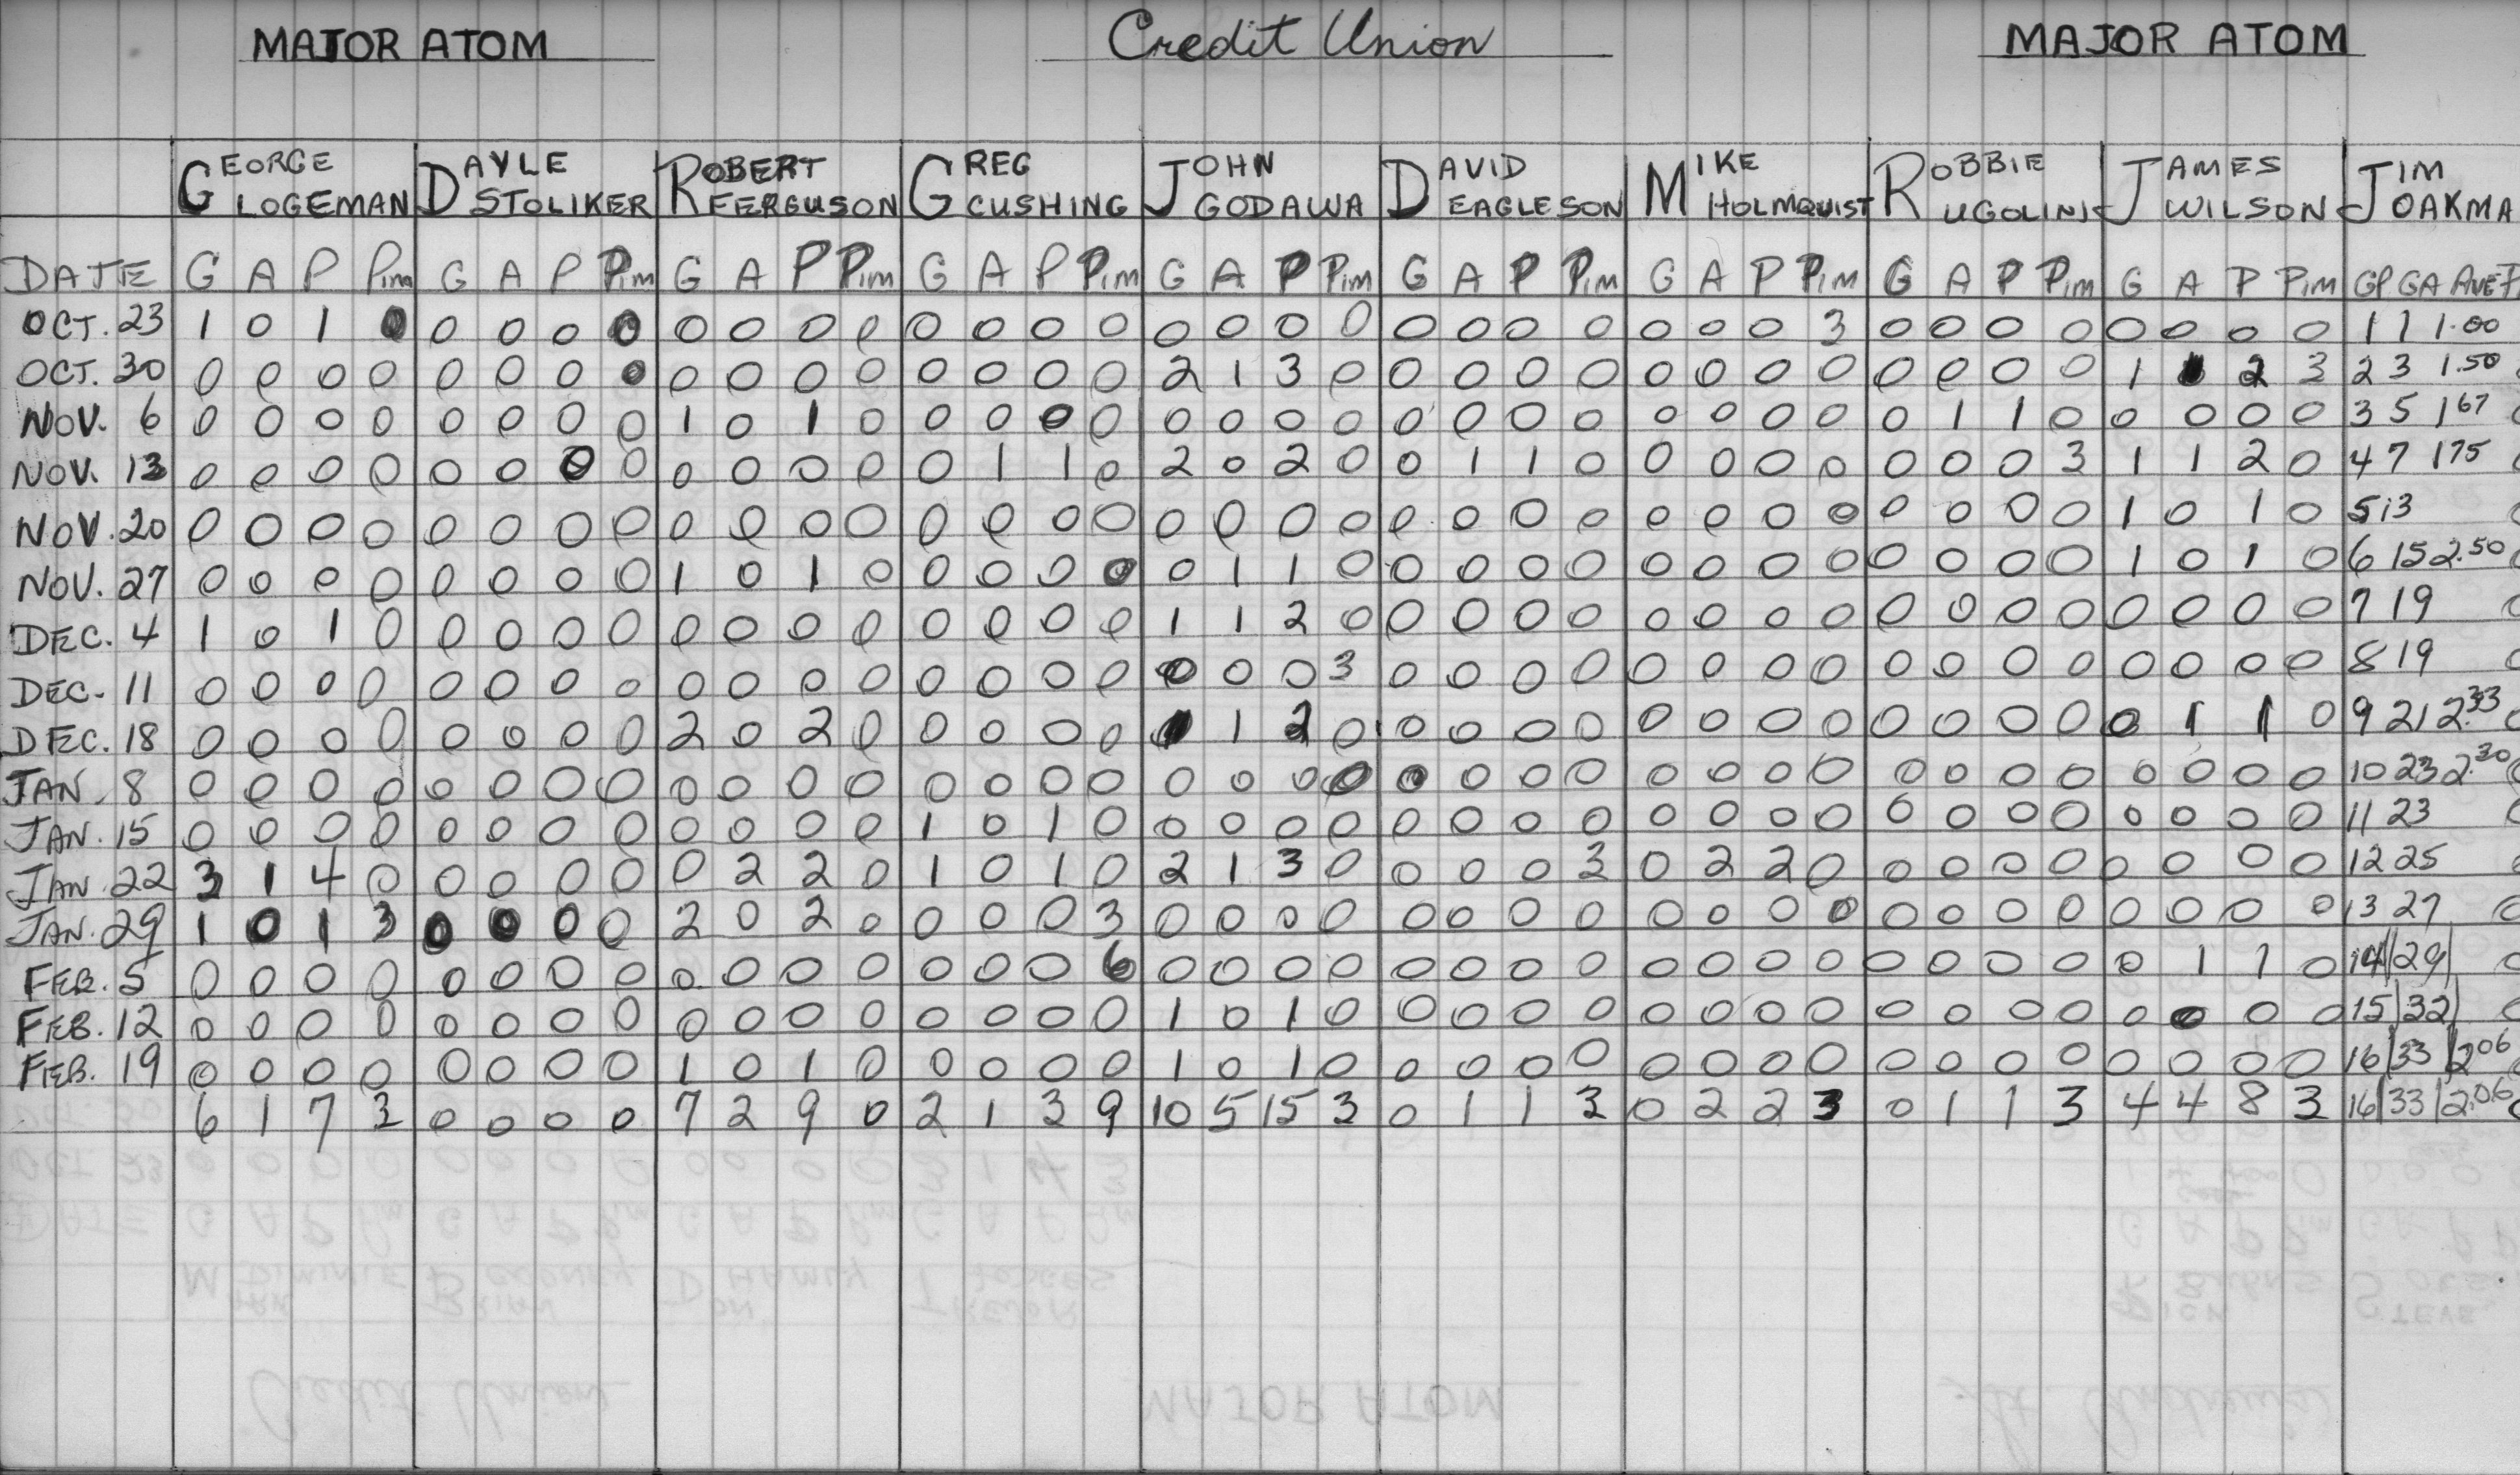 MAJOR ATOM Credit Union MAJOR ATOM
GEORGE LOGEMAN DAYLE STOLIKER ROBERT FERGUSON GREG CUSHING JOHN GODAWA DAVID EAGLESON MIKE HOLMQUIST ROBBIE UGOLINI JAMES WILSON JIM OAKMA
DATE G A P Pim G A P Pim G A P Pim G A P Pim G A P Pim G A P Pim G A P Pim G A P Pim G A P Pim GP GA AVE
OCT. 23 1 0 1 0 0 0 0 0 0 0 0 0 0 0 0 0 0 0 0 0 0 0 0 0 0 0 0 3 0 0 0 0 0 0 0 0 1 1 1.00
OCT. 30 0 0 0 0 0 0 0 0 0 0 0 0 0 0 0 0 2 1 3 0 0 0 0 0 0 0 0 0 0 0 0 0 1 1 2 3 2 3 1.50
NOV. 6 0 0 0 0 0 0 0 0 1 0 1 0 0 0 0 0 0 0 0 0 0 0 0 0 0 0 0 0 0 1 1 0 0 0 0 0 3 5 1 67
NOV. 13 0 0 0 0 0 0 0 0 0 0 0 0 0 1 1 0 2 0 2 0 0 1 1 0 0 0 0 0 0 0 0 3 1 1 2 0 4 7 175
NOV. 20 0 0 0 0 0 0 0 0 0 0 0 0 0 0 0 0 0 0 0 0 0 0 0 0 0 0 0 0 0 0 0 0 1 0 1 0 5 13
NOV. 27 0 0 0 0 0 0 0 0 1 0 1 0 0 0 0 0 0 1 1 0 0 0 0 0 0 0 0 0 0 0 0 0 1 0 1 0 6 15 2.50
DEC. 4 1 0 1 0 0 0 0 0 0 0 0 0 0 0 0 0 1 1 2 0 0 0 0 0 0 0 0 0 0 0 0 0 0 0 0 0 7 19
DEC. 11 0 0 0 0 0 0 0 0 0 0 0 0 0 0 0 0 0 0 0 3 0 0 0 0 0 0 0 0 0 0 0 0 0 0 0 0 8 19
DEC. 18 0 0 0 0 0 0 0 0 2 0 2 0 0 0 0 0 1 1 2 0 0 0 0 0 0 0 0 0 0 0 0 0 0 1 1 0 9 21 2.33
JAN. 8 0 0 0 0 0 0 0 0 0 0 0 0 0 0 0 0 0 0 0 0 0 0 0 0 0 0 0 0 0 0 0 0 0 0 0 0 10 23 2.30
JAN. 15 0 0 0 0 0 0 0 0 0 0 0 0 1 0 1 0 0 0 0 0 0 0 0 0 0 0 0 0 0 0 0 0 0 0 0 0 11 23
JAN. 22 3 1 4 0 0 0 0 0 0 2 2 0 1 0 1 0 2 1 3 0 0 0 0 3 0 2 2 0 0 0 0 0 0 0 0 0 12 25
JAN. 29 1 0 1 3 0 0 0 0 2 0 2 0 0 0 0 3 0 0 0 0 0 0 0 0 0 0 0 0 0 0 0 0 0 0 0 0 13 27
FEB. 5 0 0 0 0 0 0 0 0 0 0 0 0 0 0 0 6 0 0 0 0 0 0 0 0 0 0 0 0 0 0 0 0 0 1 1 0 14 29
FEB. 12 0 0 0 0 0 0 0 0 0 0 0 0 0 0 0 0 1 0 1 0 0 0 0 0 0 0 0 0 0 0 0 0 0 0 0 0 15 32
FEB. 19 0 0 0 0 0 0 0 0 1 0 1 0 0 0 0 0 1 0 1 0 0 0 0 0 0 0 0 0 0 0 0 0 0 0 0 0 16 33 2.06
6 1 7 3 0 0 0 0 7 2 9 0 2 1 3 9 10 5 15 3 0 1 1 3 0 2 2 3 0 1 1 3 4 4 8 3 16 33 2.06